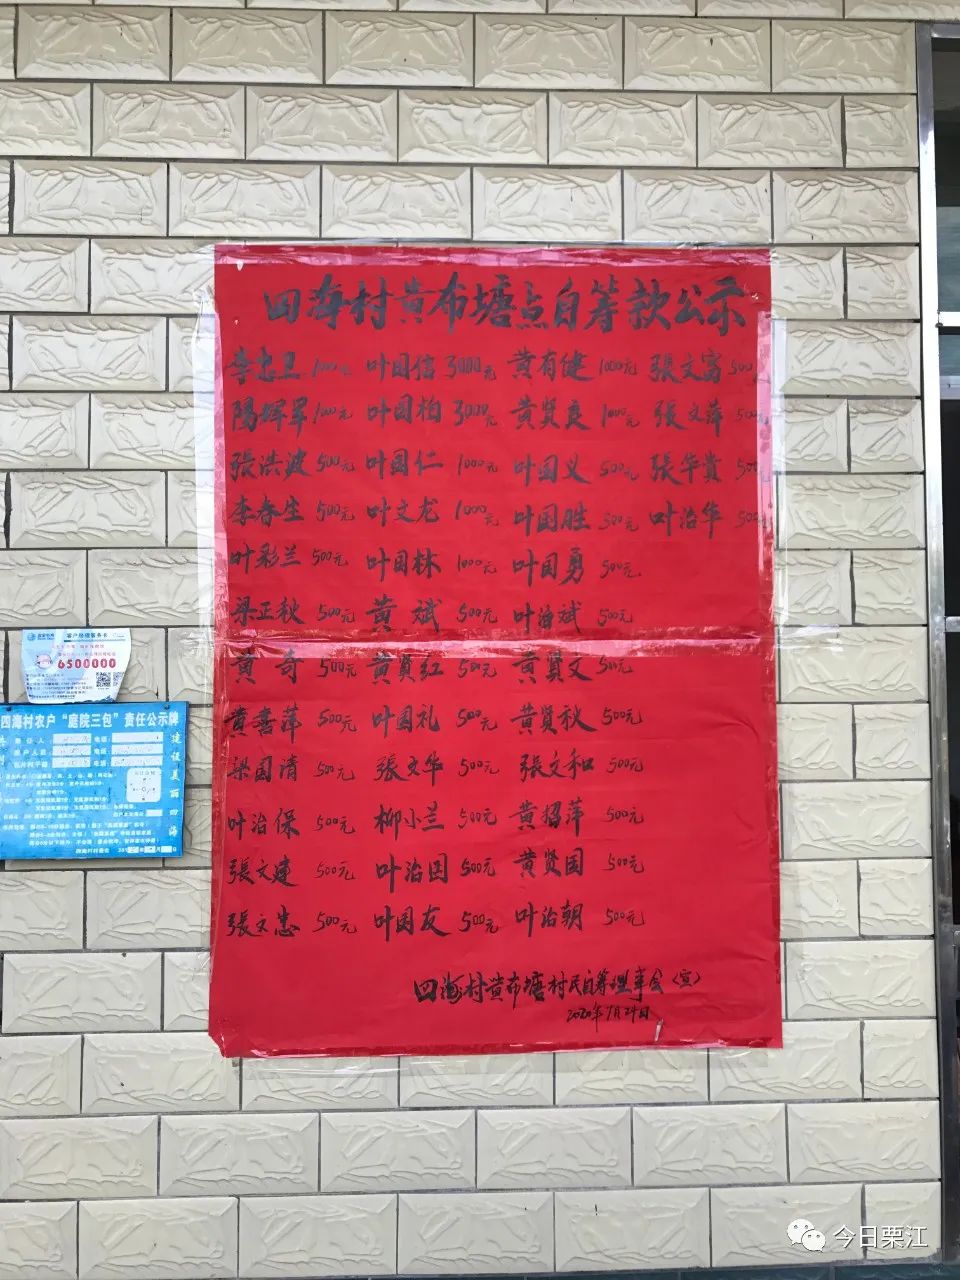 四海村黄布塘点自筹款公示
李忠卫 1000元 叶国信 3000元 黄有健 1000元 張文富 500元
陽辉军 1000元 叶国柏 3000元 黄贤良 1000元 張文萍 500元
張洪波 500元 叶国仁 1000元 叶国义 500元 張华贵 500元
李春生 500元 叶文龙 1000元 叶国胜 500元 叶治华 500元
叶彩兰 500元 叶国林 1000元 叶国勇 500元
梁正秋 500元 黄斌 500元 叶海斌 500元
黄奇 500元 黄贤红 500元 黄贤文 500元
黄喜萍 500元 叶国礼 500元 黄贤秋 500元
梁国清 500元 張文华 500元 張文和 500元
叶治保 500元 柳小兰 500元 黄招萍 500元
張文建 500元 叶治国 500元 黄贤国 500元
張文忠 500元 叶国友 500元 叶治朝 500元
四海村黄布塘村民自筹理事会(宣)
2020年7月24日
客户经理服务卡
6500000
四海村农户“庭院三包”责任公示牌
建设美丽四海
今日栗江